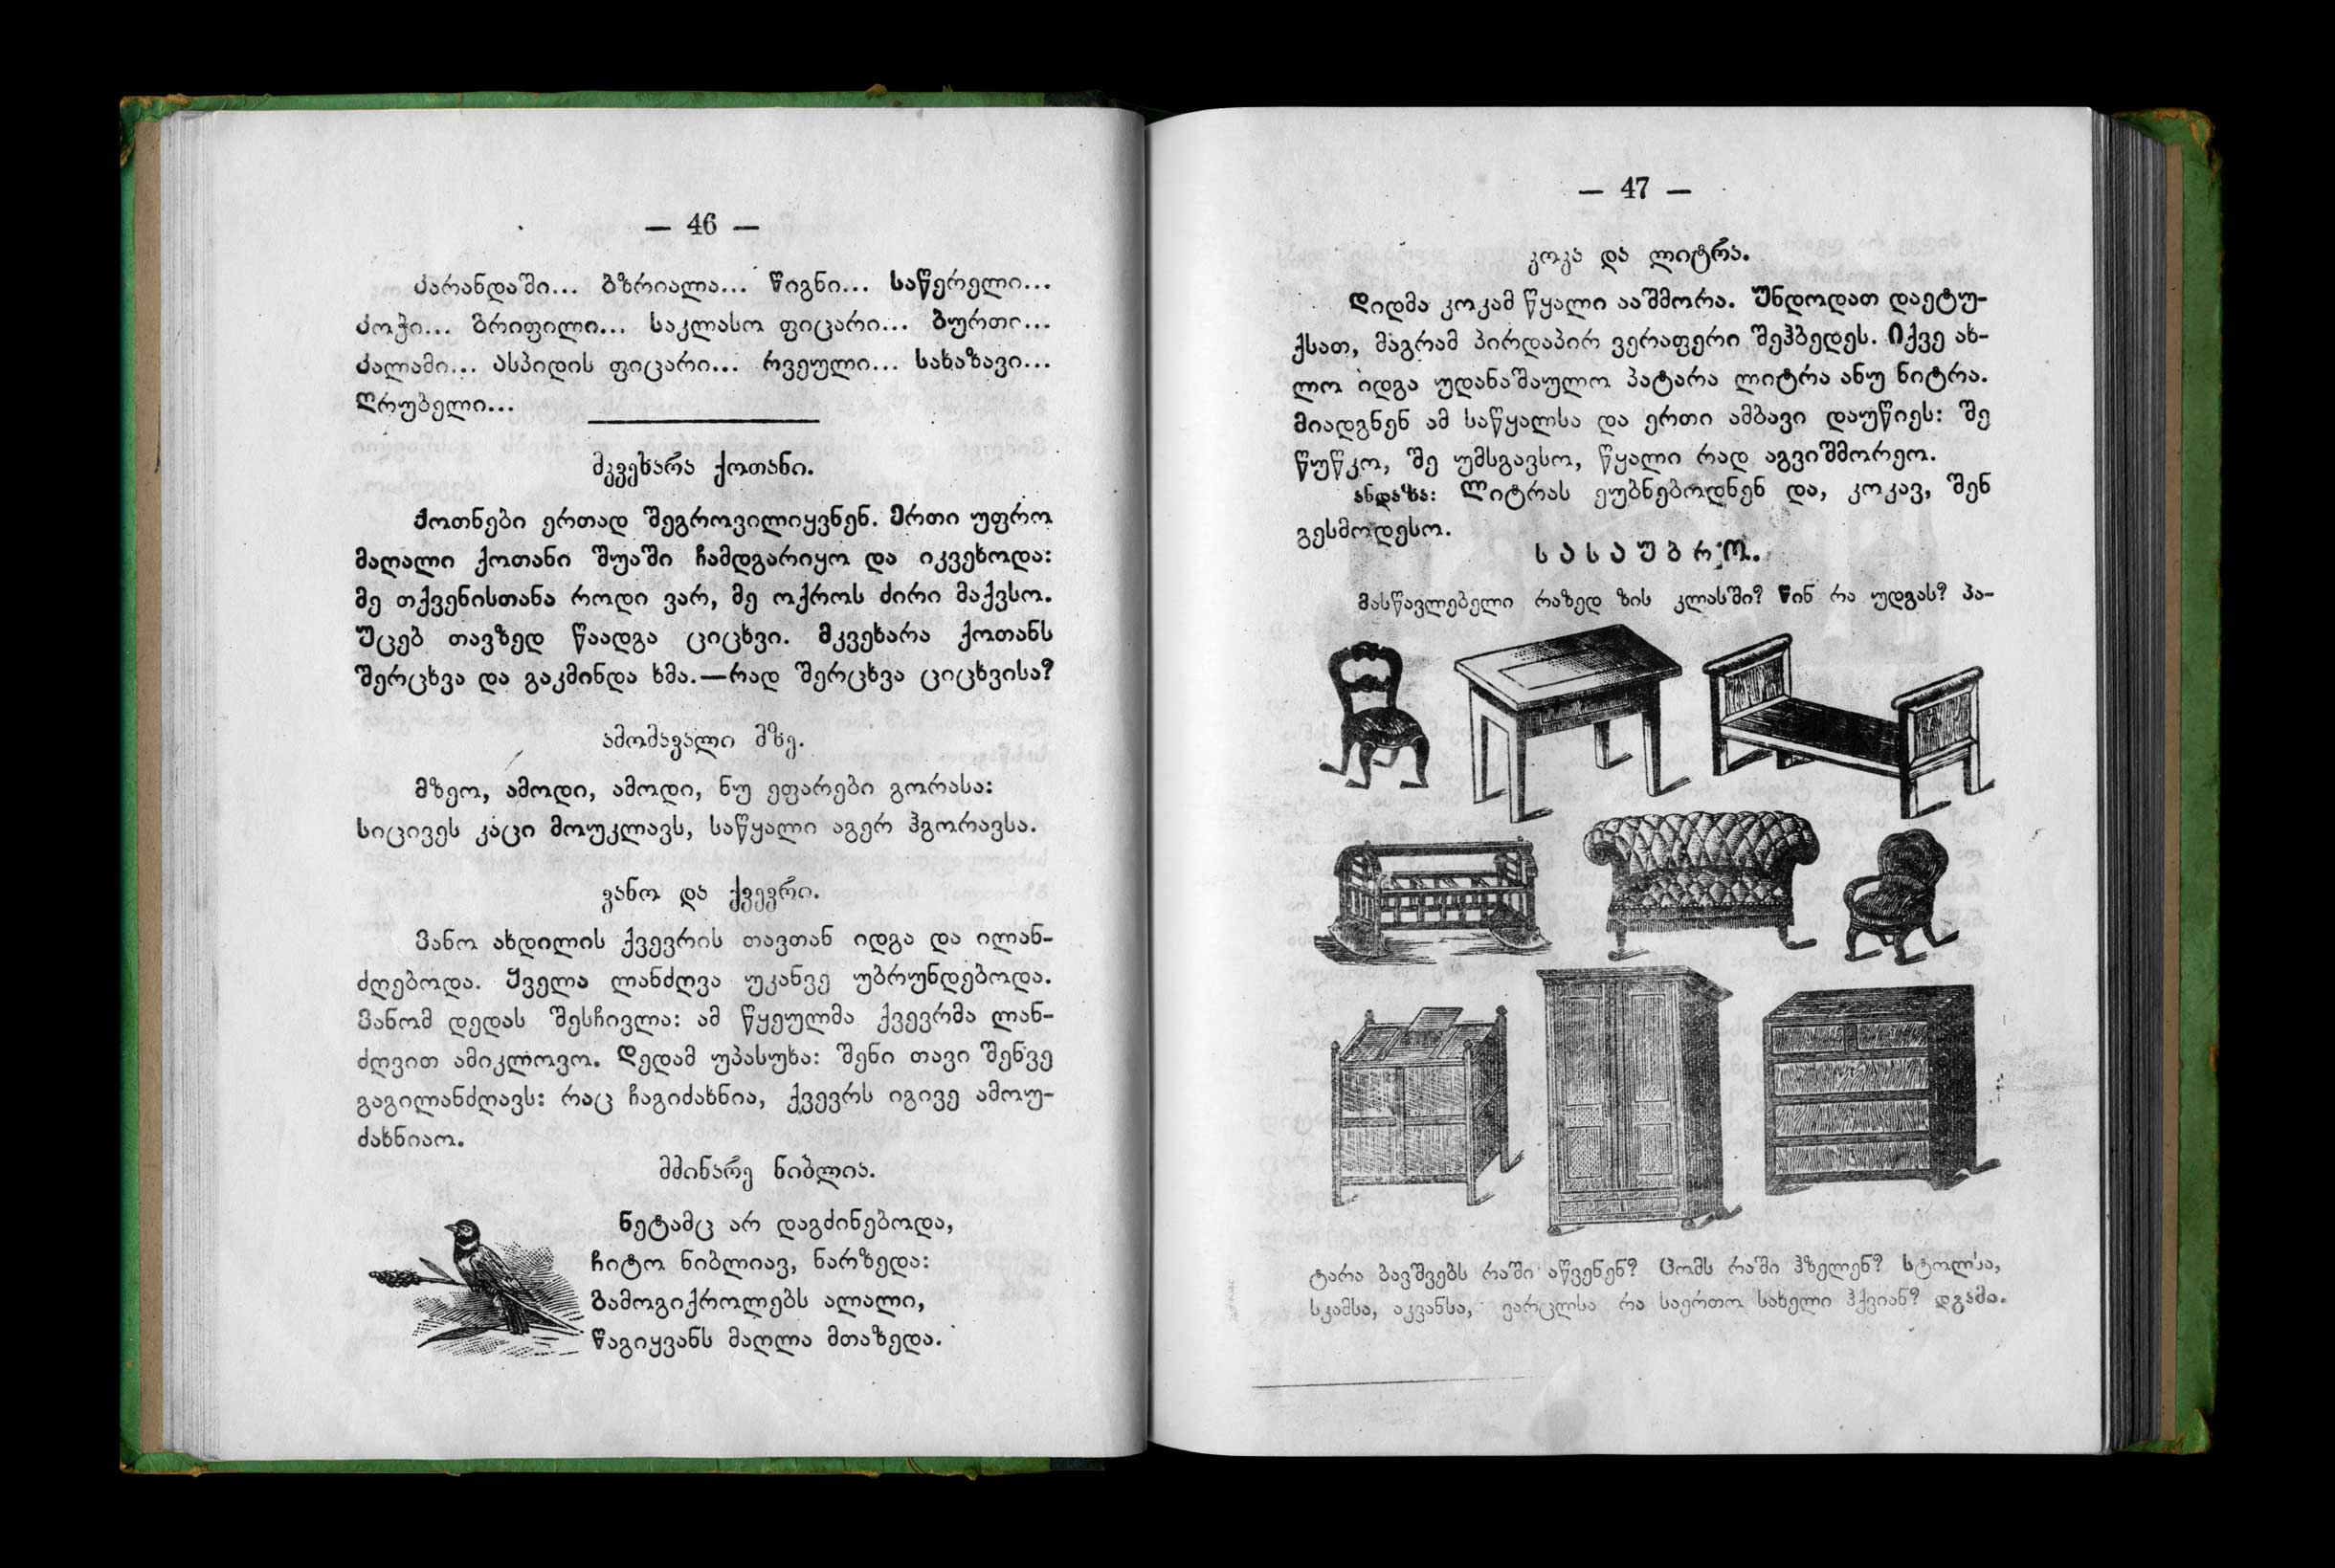 — 46 —
კარანდაში... ბზრიალა... წიგნი... საწერელი...
კოჭი... გრიფილი... საკლასო ფიცარი... ბურთი...
კალამი... ასპიდის ფიცარი... რვეული... სახაზავი...
ღრუბელი...
მკვეხარა ქოთანი.
ქოთნები ერთად შეგროვილიყვნენ. ერთი უფრო
მაღალი ქოთანი შუაში ჩამდგარიყო და იკვეხოდა:
მე თქვენისთანა როდი ვარ, მე ოქროს ძირი მაქვსო.
უცებ თავზედ წაადგა ციცხვი. მკვეხარა ქოთანს
შერცხვა და გაკმინდა ხმა.—რად შერცხვა ციცხვისა?
ამომავალი მზე.
მზეო, ამოდი, ამოდი, ნუ ეფარები გორასა:
სიცივეს კაცი მოუკლავს, საწყალი აგერ ჰგორავსა.
ვანო და ქვევრი.
ვანო ახდილის ქვევრის თავთან იდგა და ილან-
ძღებოდა. ყველა ლანძღვა უკანვე უბრუნდებოდა.
ვანომ დედას შესჩივლა: ამ წყეულმა ქვევრმა ლან-
ძღვით ამიკლოვო. დედამ უპასუხა: შენი თავი შენვე
გაგილანძღავს: რაც ჩაგიძახნია, ქვევრს იგივე ამოუ-
ძახნიაო.
მძინარე ნიბლია.
ნეტამც არ დაგძინებოდა,
ჩიტო ნიბლიავ, ნარზედა:
გამოგიქროლებს ალალი,
წაგიყვანს მაღლა მთაზედა.
— 47 —
კოკა და ლიტრა.
დიდმა კოკამ წყალი ააშმორა. უნდოდათ დაეტუ-
ქსათ, მაგრამ პირდაპირ ვერაფერი შეჰბედეს. იქვე ახ-
ლო იდგა უდანაშაულო პატარა ლიტრა ანუ ნიტრა.
მიადგნენ ამ საწყალსა და ერთი ამბავი დაუწიეს: შე
წუწკო, შე უმსგავსო, წყალი რად აგვიშმორეო.
ანდაზა: ლიტრას ეუბნებოდნენ და, კოკავ, შენ
გესმოდესო.
სასაუბრო.
მასწავლებელი რაზედ ზის კლასში? წინ რა უდგას? პა-
ტარა ბავშვებს რაში აწვენენ? ცომს რაში ჰზელენ? სტოლსა,
სკამსა, აკვანსა, ვარცლსა რა საერთო სახელი ჰქვიან? დგამი.